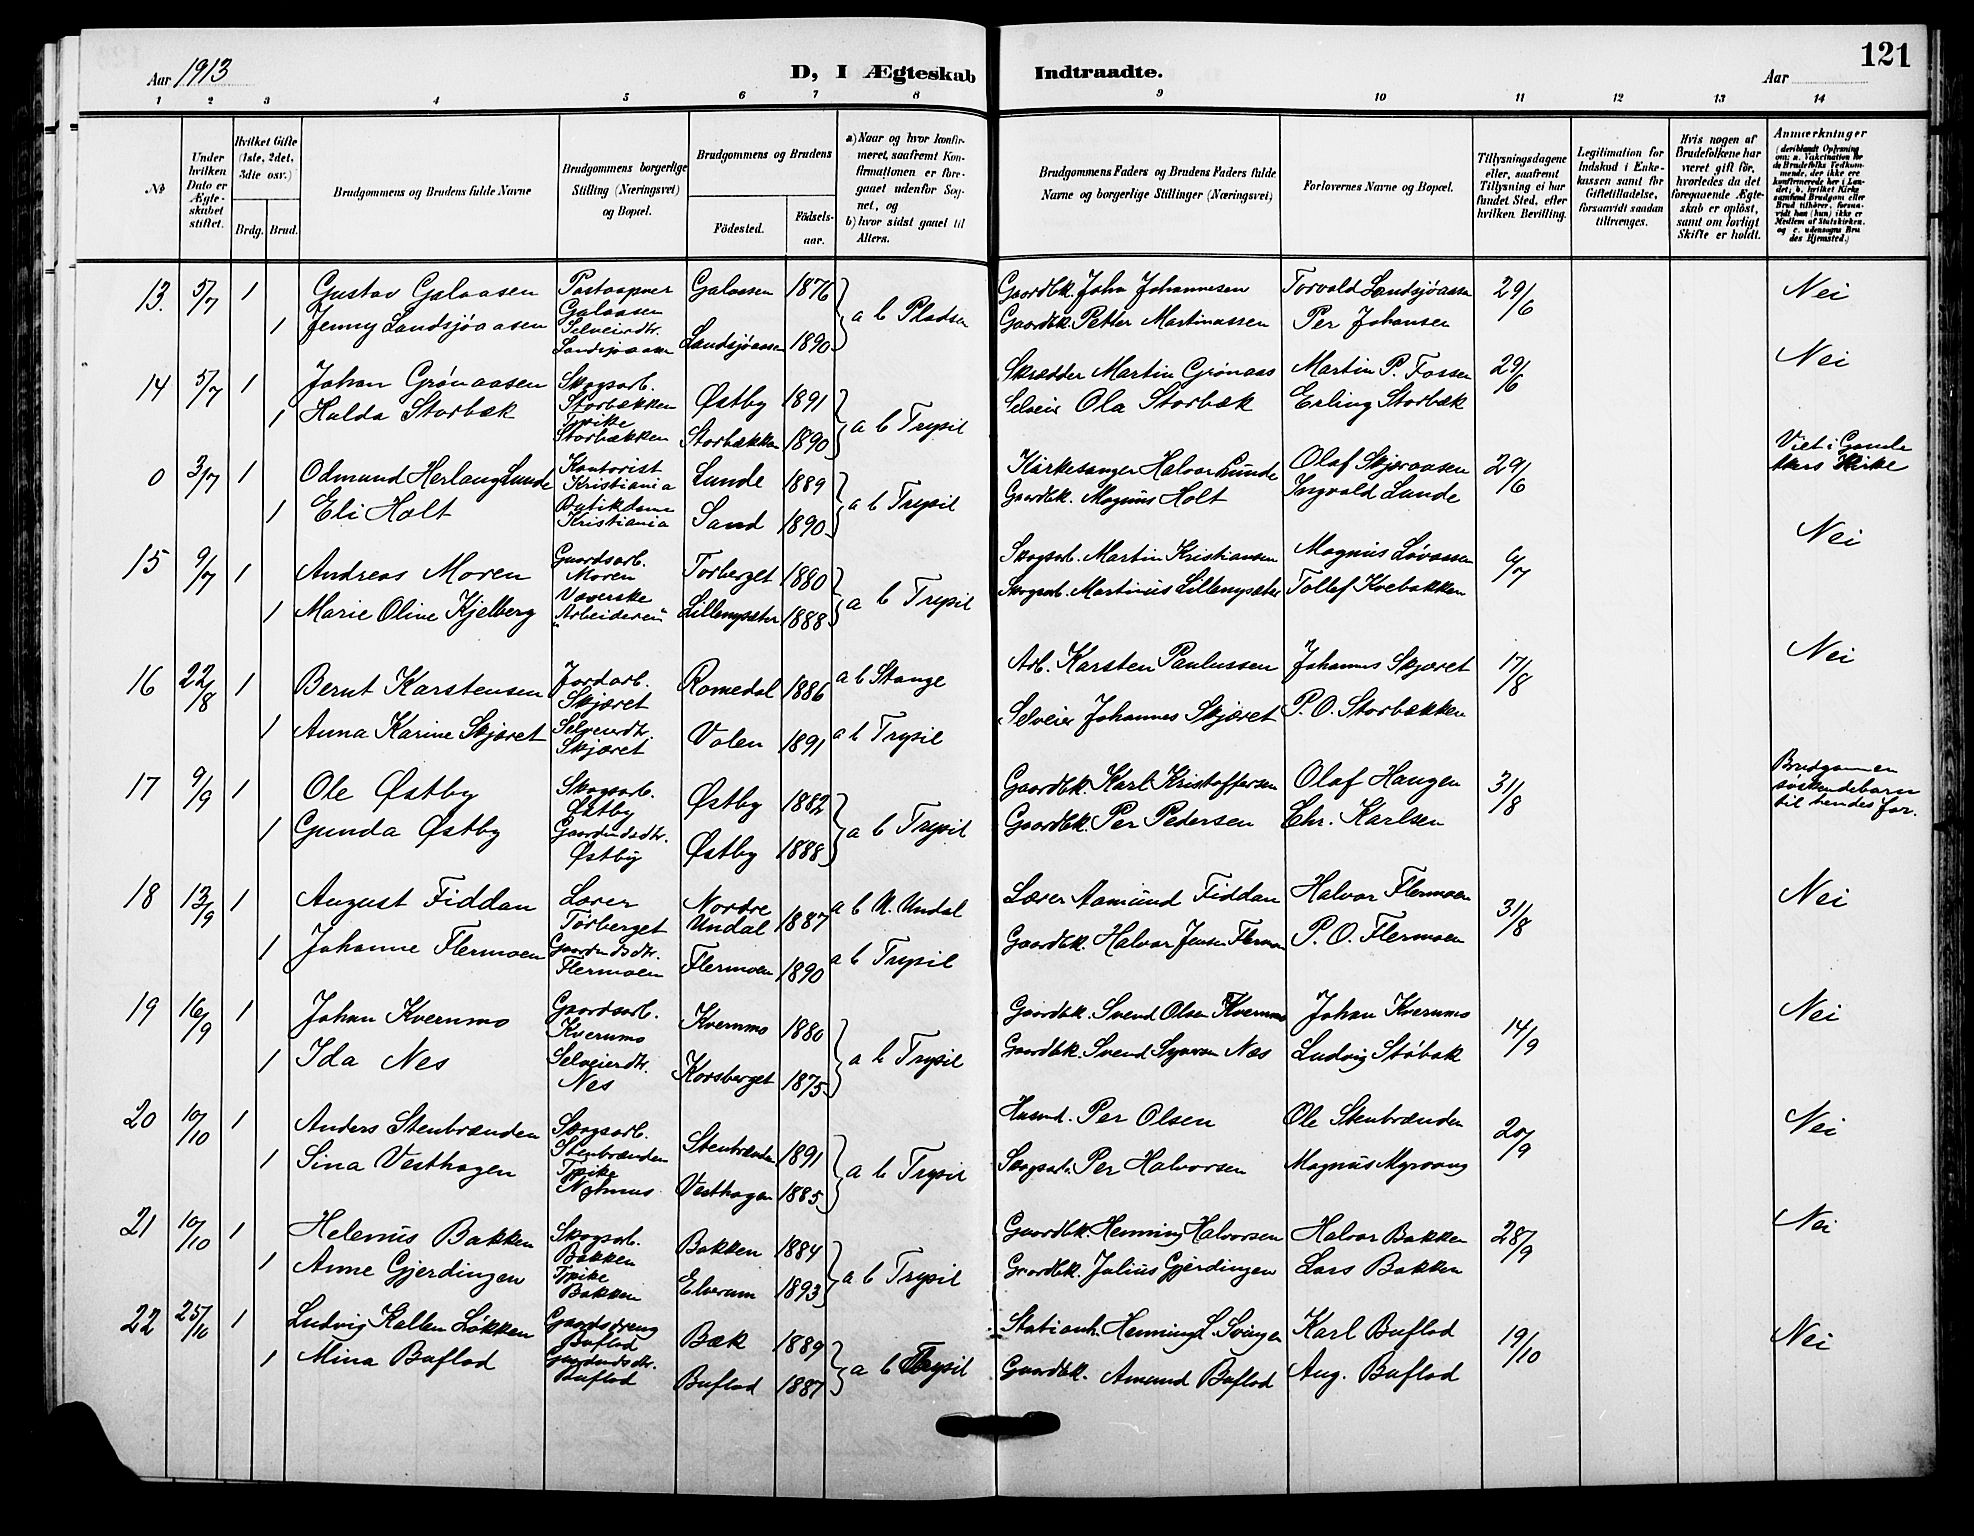 Aar 1913
D, I Ægteskab
Indtraadte.
Aar
121
1 2 3 4 5 6 7 8 9 10 11 12 13 14
No
Under hvilken Dato er Ægteskabet stiftet.
Hvilket Gifte (1ste, 2det, 3die osv.)
Brdg. Brud.
Brudgommens og Brudens fulde Navne
Brudgommens borgerlige Stilling (Næringsvei) og Bopæl.
Brudgommens og Brudens
Födested.
Födselsaar.
a) Naar og hvor konfirmeret, saafremt Konfirmationen er foregaaet udenfor Sognet, og
b) hvor sidst gaaet til Alters.
Brudgommens Faders og Brudens Faders fulde Navne og borgerlige Stillinger (Næringsvei)
Forlovernes Navne og Bopæl.
Tillysningsdagene eller, saafremt Tillysning ei har fundet Sted, efter hvilken Bevilling.
Legitimation for Indskud i Enkekassen samt for Giftetilladelse, forsaavidt saadan tiltrænges.
Hvis nogen af Brudefolkene har været gift för, hvorledes da det foregaaende Ægteskab er oplöst, samt om lovligt Skifte er holdt.
Anmærkninger
(deriblandt Oplysning om: a. Vakcination for de Brudefolks Vedkommende, der ikke ere konfirmerede her i Landet; b. hvilket Kirkesamfund Brudgom eller Brud tilhører, forsaavidt han (hun) ikke er Medlem af Statskirken. og c. udensogns Brudes Hjemsted.)
13. 5/7 1 Gustav Galaasen Postaapner Galaasen Galaasen 1876 a b Pladsen Gaardbk. John Johannesen Torvald Landsjøaasen 29/6 Nei
1 Jenny Landsjøaasen Selveierdtr. Landsjøaasen Landsjøaasen 1890 Gaardbk. Petter Martinussen Per Johansen
14 5/7 1 Johan Grønaasen Skogsarb. Storbækken Østby 1891 a b Trysil Skrædder Martin Grønaas Martin P. Fossen 29/6 Nei
1 Hulda Storbæk Storbækken Storbækken 1890 Selveier Ola Storbæk Erling Storbæk
0 3/7 1 Odmund Herlaug Lunde Kontorist Kristiania Lunde 1889 a b Trysil Kirkesanger Halvar Lunde Olaf Skjæraasen 29/6 Viet i Gamle Akers Kirke
1 Eli Holt Butikdame Kristiania Sand 1890 Gaardbk. Magnus Holt Ingvald Lunde
15 9/7 1 Andreas Moren Gaardsarb. Moren Torberget 1880 a b Trysil Skogsarb. Martin Kristiansen Magnus Løvaasen 6/7 Nei
1 Marie Olive Kjelberg Væverske "Arbeideren" Lillemysæter 1888 Skogsarb. Martinus Lillemysæter Tollef Kvebakken
16 22/8 1 Bernt Karstensen Jordarb. Skjæret Romedal 1886 a b Stange Arb. Karsten Paulussen Johannes Skjæret 17/8 Nei
1 Anna Karine Skjæret Selveierdtr. Skjæret Volen 1891 a b Trysil Selveier Johannes Skjæret P. O. Storbækken
17 9/9 1 Ole Østby Skogsarb. Østby Østby 1882 a b Trysil Gaardbk. Karl Kristoffersen Olaf Haugen 31/8 Brudgommen søskendebarn til hendes far.
1 Gunda Østby Gaardmdsdtr. Østby Østby 1888 Gaardbk. Per Pedersen Chr. Karlsen
18 13/9 1 August Fiddan Lærer Tørberget Nordre Undal 1887 a b N. Undal Lærer Aamund Fiddan Halvor Flermoen 31/8 Nei
1 Johanne Flermoen Gaardmdsdtr. Flermoen Flermoen 1890 a b Trysil Gaardbk. Halvor Jensen Flermoen P. O. Flermoen
19 16/9 1 Johan Kvernmo Gaardsarb. Kvernmo Kvernmo 1880 a b Trysil Gaardbk. Svend Olsen Kvernmo Johan Kvernmo 14/9 Nei
1 Ida Nes Selveierdtr. Nes Korsberget 1875 Gaardbk. Svend Syversen Næs Ludvig Støbak
20 10/10 1 Anders Stenbrænden Skogsarb. Stenbrænden Stenbrænden 1891 a b Trysil Husmd. Per Olsen Ole Stenbrænden 20/9 Nei
1 Sina Vesthagen Nyhuus Vesthagen 1885 Skogsarb. Per Halvorsen Magnus Myrvang
21 10/10 1 Helenus Bakken Skogsarb. Bakken Bakken 1884 a b Trysil Gaardbk. Henning Halvorsen Halvar Bakken 28/9 Nei
1 Anne Gjerdingen Bakken Elverum 1893 Gaardbk. Julius Gjerdingen Lars Bakken
22 25/10 1 Ludvig Kallen Løkken Gaardsdreng Buflod Bæk 1889 a b Trysil Stationh. Henning L. Svingen Karl Buflod 19/10 Nei
1 Mina Buflod Gaardmdsdtr. Buflod Buflod 1887 Gaardbk. Amund Buflod Aug. Buflod